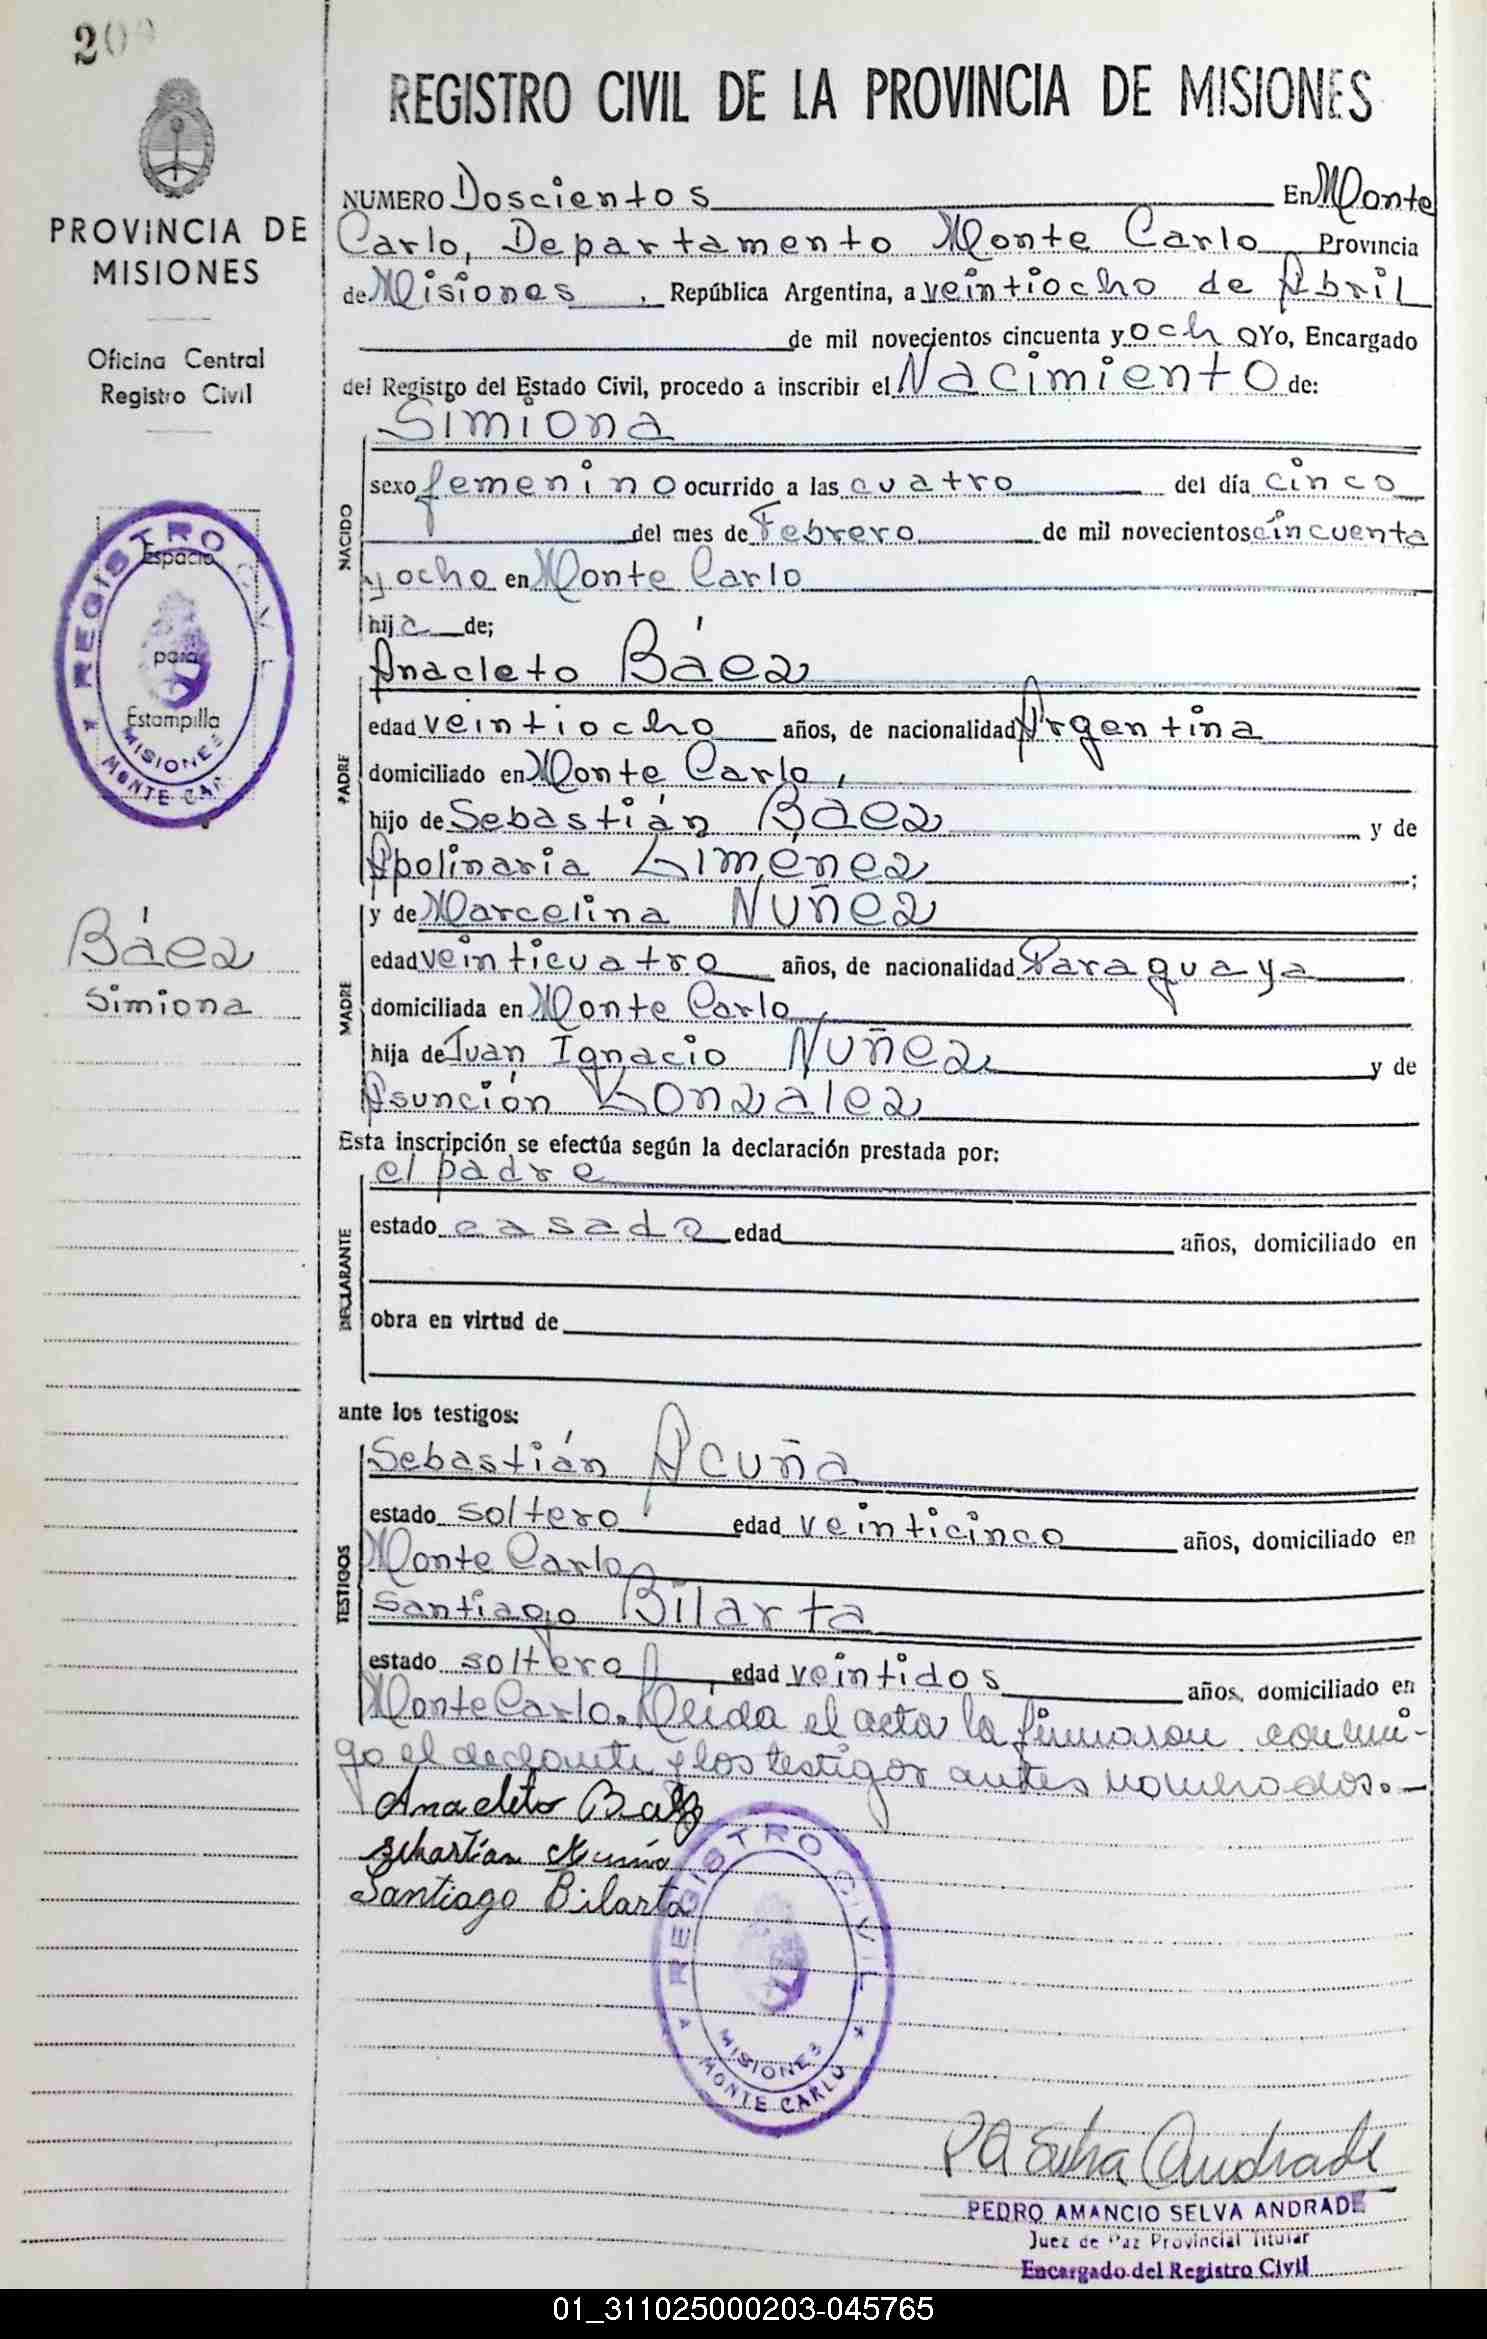 200
PROVINCIA DE
MISIONES
Oficina Central
Registro Civil
REGISTRO CIVIL
Espacio
para
Estampilla
MISIONES
MONTE CAR
Báez
Simiona
REGISTRO CIVIL DE LA PROVINCIA DE MISIONES
NUMERO Doscientos En Monte
Carlo, Departamento Monte Carlo Provincia
de Misiones, República Argentina, a veintiocho de Abril
de mil novecientos cincuenta y ocho Yo, Encargado
del Registro del Estado Civil, procedo a inscribir el Nacimiento de:
NACIDO
Simiona
sexo femenino ocurrido a las cuatro del día cinco
del mes de Febrero de mil novecientos cincuenta
y ocho en Monte Carlo
hija de;
PADRE
Anacleto Báez
edad veintiocho años, de nacionalidad Argentina
domiciliado en Monte Carlo,
hijo de Sebastián Báez y de
Apolinaria Giménez;
MADRE
y de Marcelina Nuñez
edad veinticuatro años, de nacionalidad Paraguaya
domiciliada en Monte Carlo,
hija de Juan Ignacio Nuñez y de
Asunción Gonzalez
Esta inscripción se efectúa según la declaración prestada por:
DECLARANTE
el padre
estado casado edad años, domiciliado en
obra en virtud de
ante los testigos:
TESTIGOS
Sebastián Acuña
estado soltero edad veinticinco años, domiciliado en
Monte Carlo
Santiago Bilarta
estado soltero edad veintidos años, domiciliado en
Monte Carlo. Leida el acta la firmaron conmi-
go el declante y los testigos antes nombrados.-
Anacleto Baez
Sebastian Acuña
Santiago Bilarta
REGISTRO CIVIL
MISIONES
MONTE CARLO
P A Selva Andrade
PEDRO AMANCIO SELVA ANDRADE
Juez de Paz Provincial Titular
Encargado del Registro Civil
01_311025000203-045765